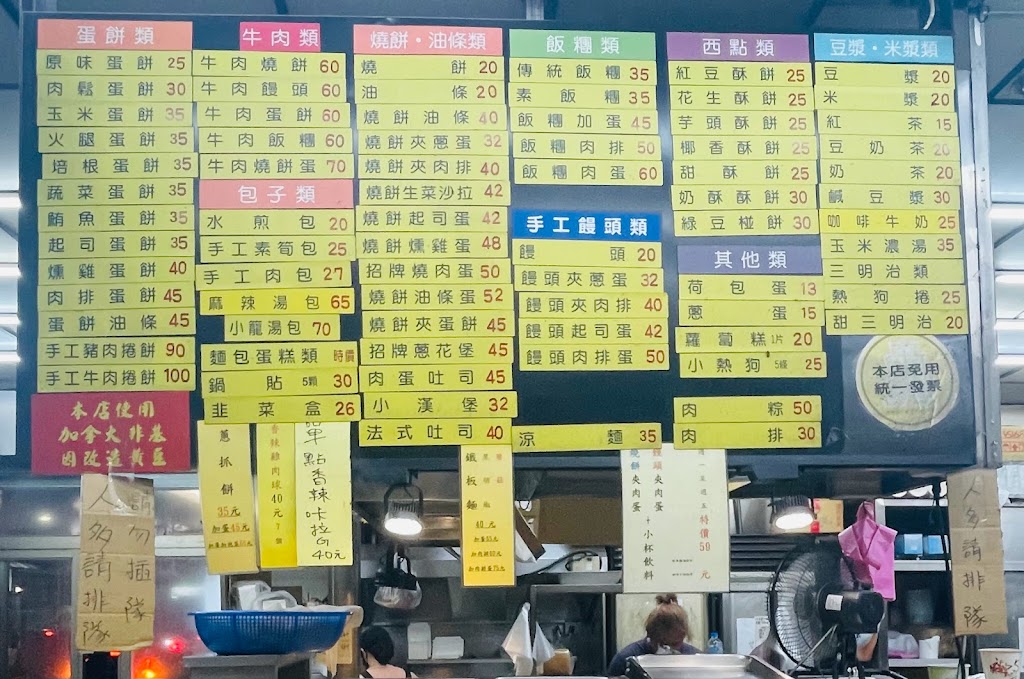 蛋餅類
原味蛋餅 25
肉鬆蛋餅 30
玉米蛋餅 35
火腿蛋餅 35
培根蛋餅 35
蔬菜蛋餅 35
鮪魚蛋餅 35
起司蛋餅 35
燻雞蛋餅 40
肉排蛋餅 45
蛋餅油條 45
手工豬肉捲餅 90
手工牛肉捲餅 100
本店使用
加拿大非基
因改造黃豆
牛肉類
牛肉燒餅 60
牛肉饅頭 60
牛肉蛋餅 60
牛肉飯糰 60
牛肉燒餅蛋 70
包子類
水煎包 20
手工素筍包 25
手工肉包 27
麻辣湯包 65
小龍湯包 70
麵包蛋糕類 時價
鍋貼 5顆 30
韭菜盒 26
燒餅·油條類
燒餅 20
油條 20
燒餅油條 40
燒餅夾蔥蛋 32
燒餅夾肉排 40
燒餅生菜沙拉 42
燒餅起司蛋 42
燒餅燻雞蛋 48
招牌燒肉蛋 50
燒餅油條蛋 52
燒餅夾蛋餅 45
招牌蔥花堡 45
肉蛋吐司 45
小漢堡 32
法式吐司 40
飯糰類
傳統飯糰 35
素飯糰 35
飯糰加蛋 45
飯糰肉排 50
飯糰肉蛋 60
手工饅頭類
饅頭 20
饅頭夾蔥蛋 32
饅頭夾肉排 40
饅頭起司蛋 42
饅頭肉排蛋 50
涼麵 35
西點類
紅豆酥餅 25
花生酥餅 25
芋頭酥餅 25
椰香酥餅 25
甜酥餅 25
奶酥酥餅 30
綠豆椪餅 30
其他類
荷包蛋 13
蔥蛋 15
蘿蔔糕 1片 20
小熱狗 5條 25
肉粽 50
肉排 30
豆漿·米漿類
豆漿 20
米漿 20
紅茶 15
豆奶茶 20
奶茶 20
鹹豆漿 30
咖啡牛奶 25
玉米濃湯 35
三明治類
熱狗捲 25
甜三明治 20
本店免用
統一發票
蔥抓餅
35元
加蛋45元
香辣雞肉球40元
單點香辣咔拉
40元
鐵板麵
40元
燒餅夾肉蛋
饅頭夾肉蛋
+小杯飲料
特價59元
請勿插隊
人多請排隊
人多請排隊